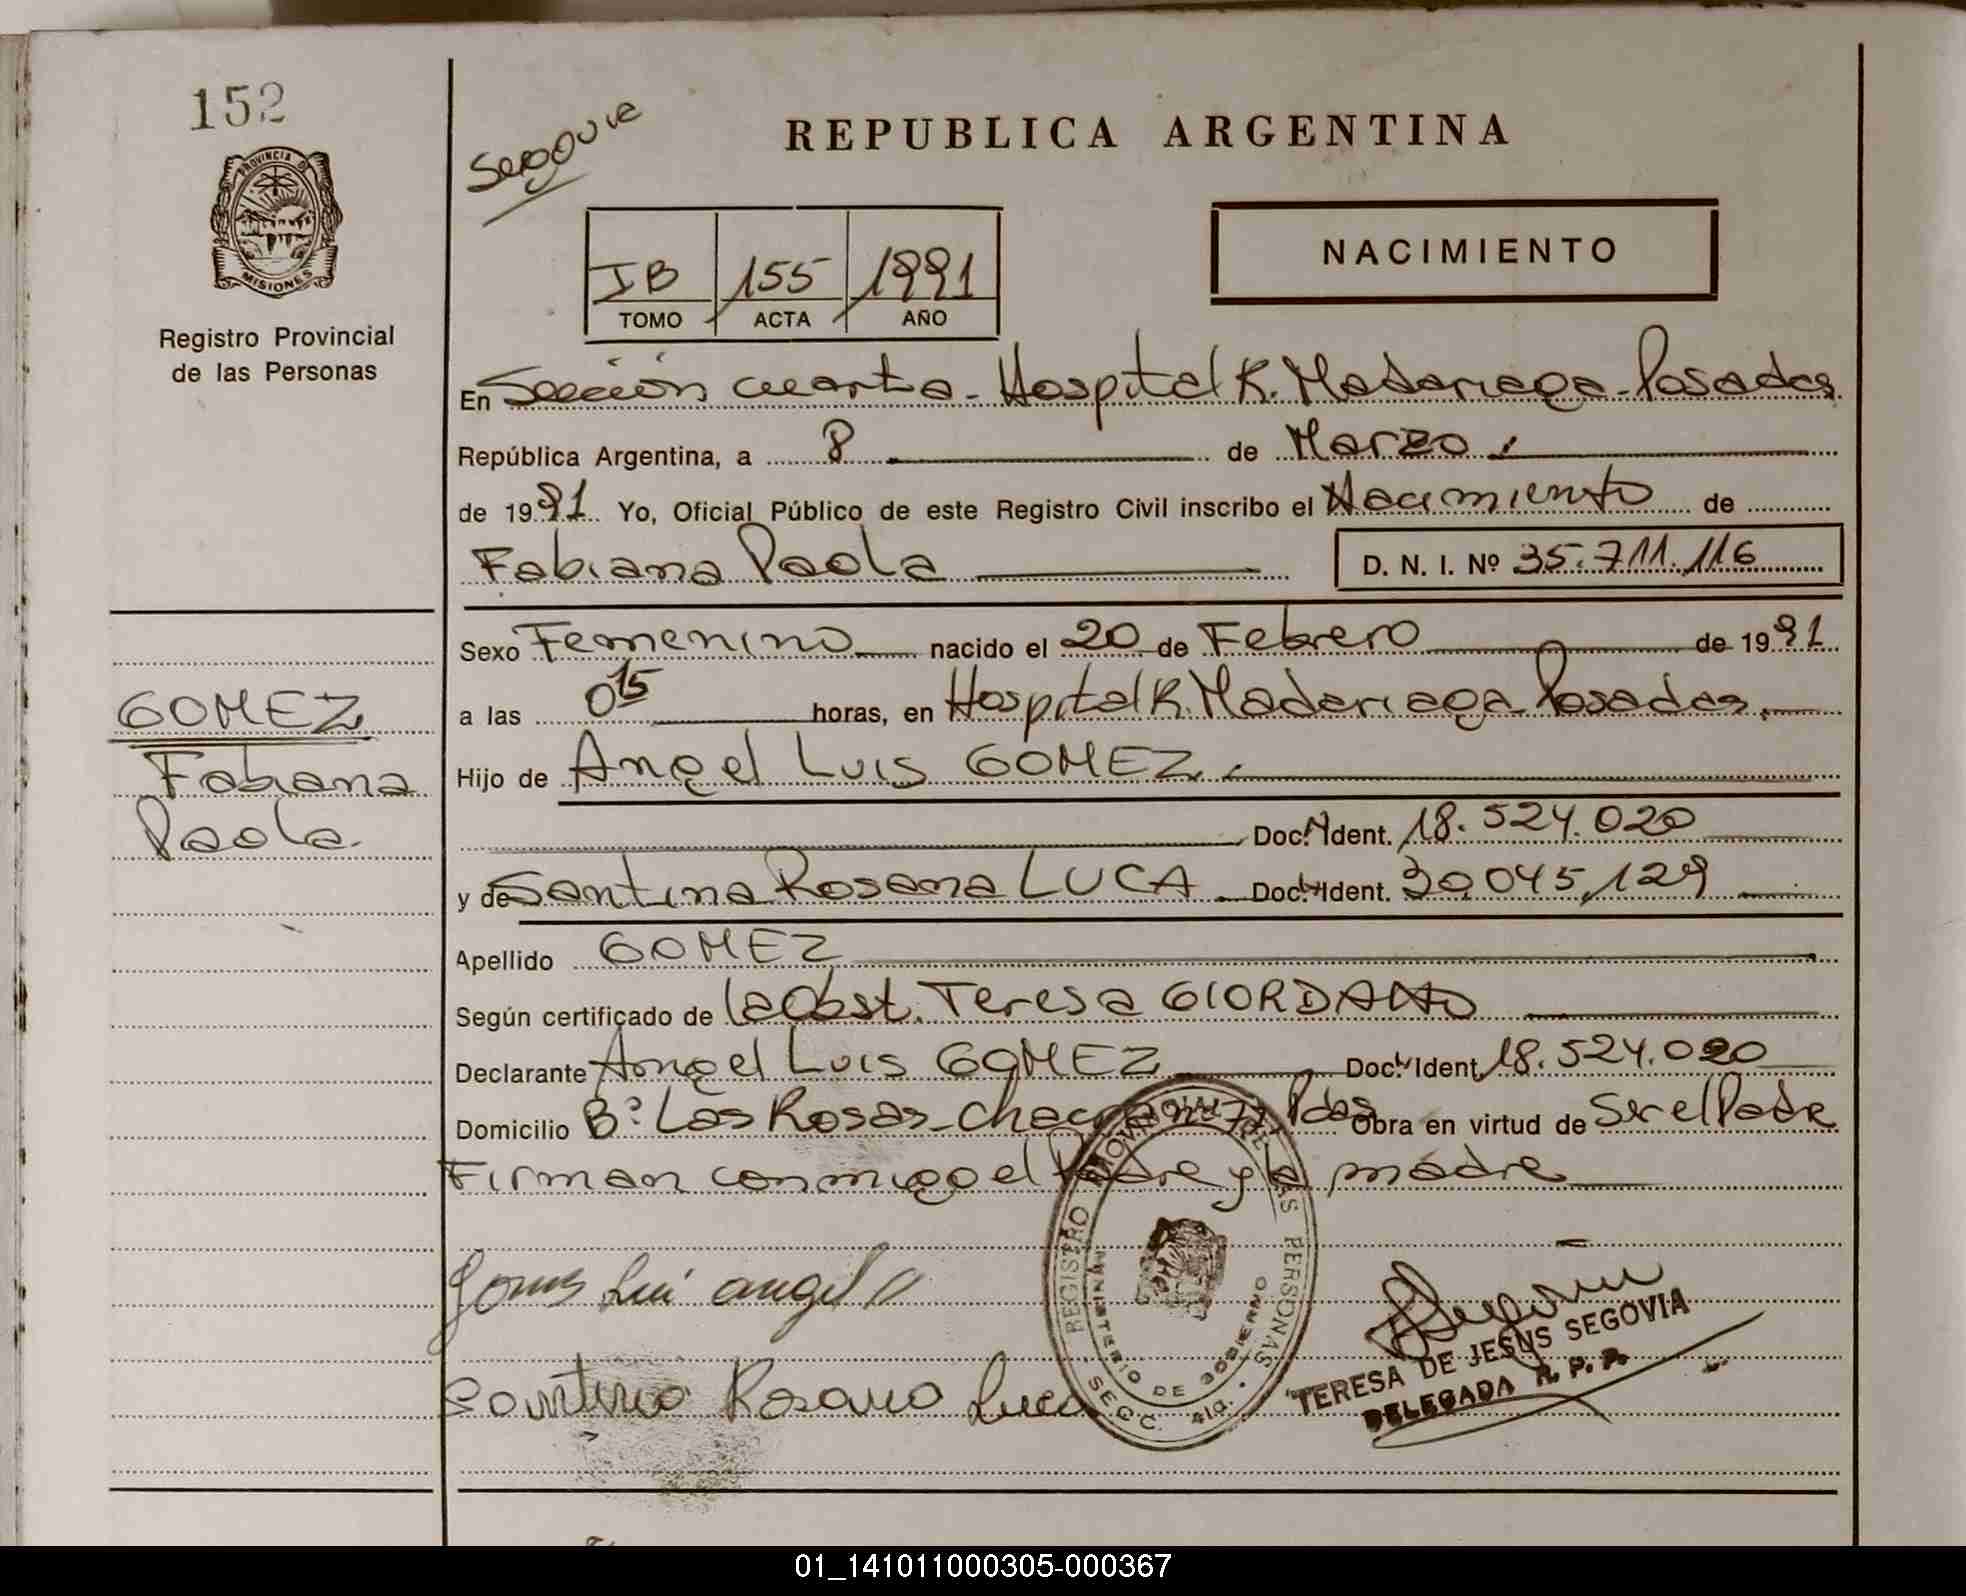 152
PROVINCIA DE
MISIONES
Registro Provincial
de las Personas
GOMEZ
Fabiana
Paola
REPUBLICA ARGENTINA
NACIMIENTO
IB 155 1991
TOMO ACTA AÑO
En Sección cuarta - Hospital R. Madariaga - Posadas
República Argentina, a 8 de Marzo
de 1991 Yo, Oficial Público de este Registro Civil inscribo el Nacimiento de
Fabiana Paola D. N. I. Nº 35.711.116
Sexo Femenino nacido el 20 de Febrero de 1991
a las 0 15 horas, en Hospital R. Madariaga Posadas
Hijo de Angel Luis GOMEZ
Doc. Ident. 18.524.020
y de Santina Rosana LUCA Doc. Ident. 30.045.129
Apellido GOMEZ
Según certificado de la Obst. Teresa GIORDANO
Declarante Angel Luis GOMEZ Doc. Ident. 18.524.020
Domicilio Bº Las Rosas - Chacra nº 77 Pdas Obra en virtud de Ser el Padre
Firman conmigo el Padre y la madre
Luis angel
Rosana Luca
REGISTRO PROVINCIAL DE LAS PERSONAS
MINISTERIO DE GOBIERNO
SECC. 4ta.
TERESA DE JESUS SEGOVIA
DELEGADA R. P. P.
01_141011000305-000367